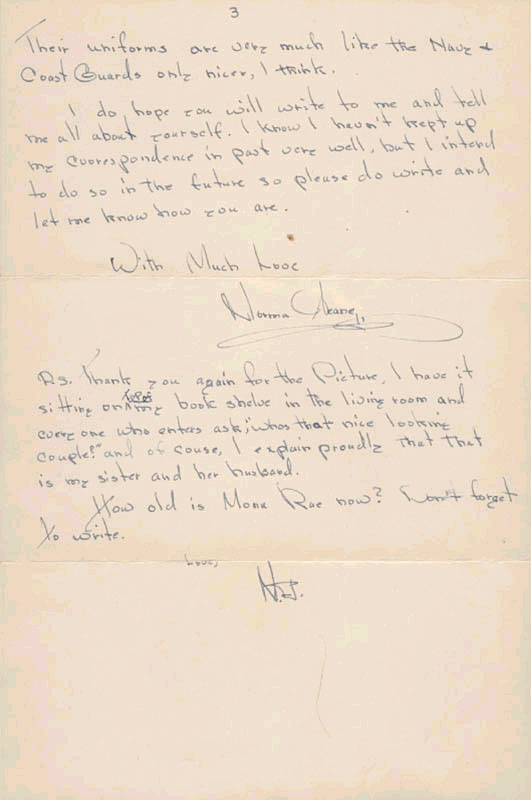 3
Their uniforms are very much like the Navy &
Coast Guards only nicer, I think.
I do hope you will write to me and tell
me all about yourself. I know I haven't kept up
my correspondence in past very well, but I intend
to do so in the future so please do write and
let me know how you are.
With Much Love
Norma Jeane,
P.S. Thank you again for the Picture, I have it
sitting on my book shelve in the living room and
every one who enters ask, "whos that nice looking
couple?" and of couse, I explain proudly that that
is my sister and her husband.
How old is Mona Rae now? Don't forget
to write.
Love,
N.J.